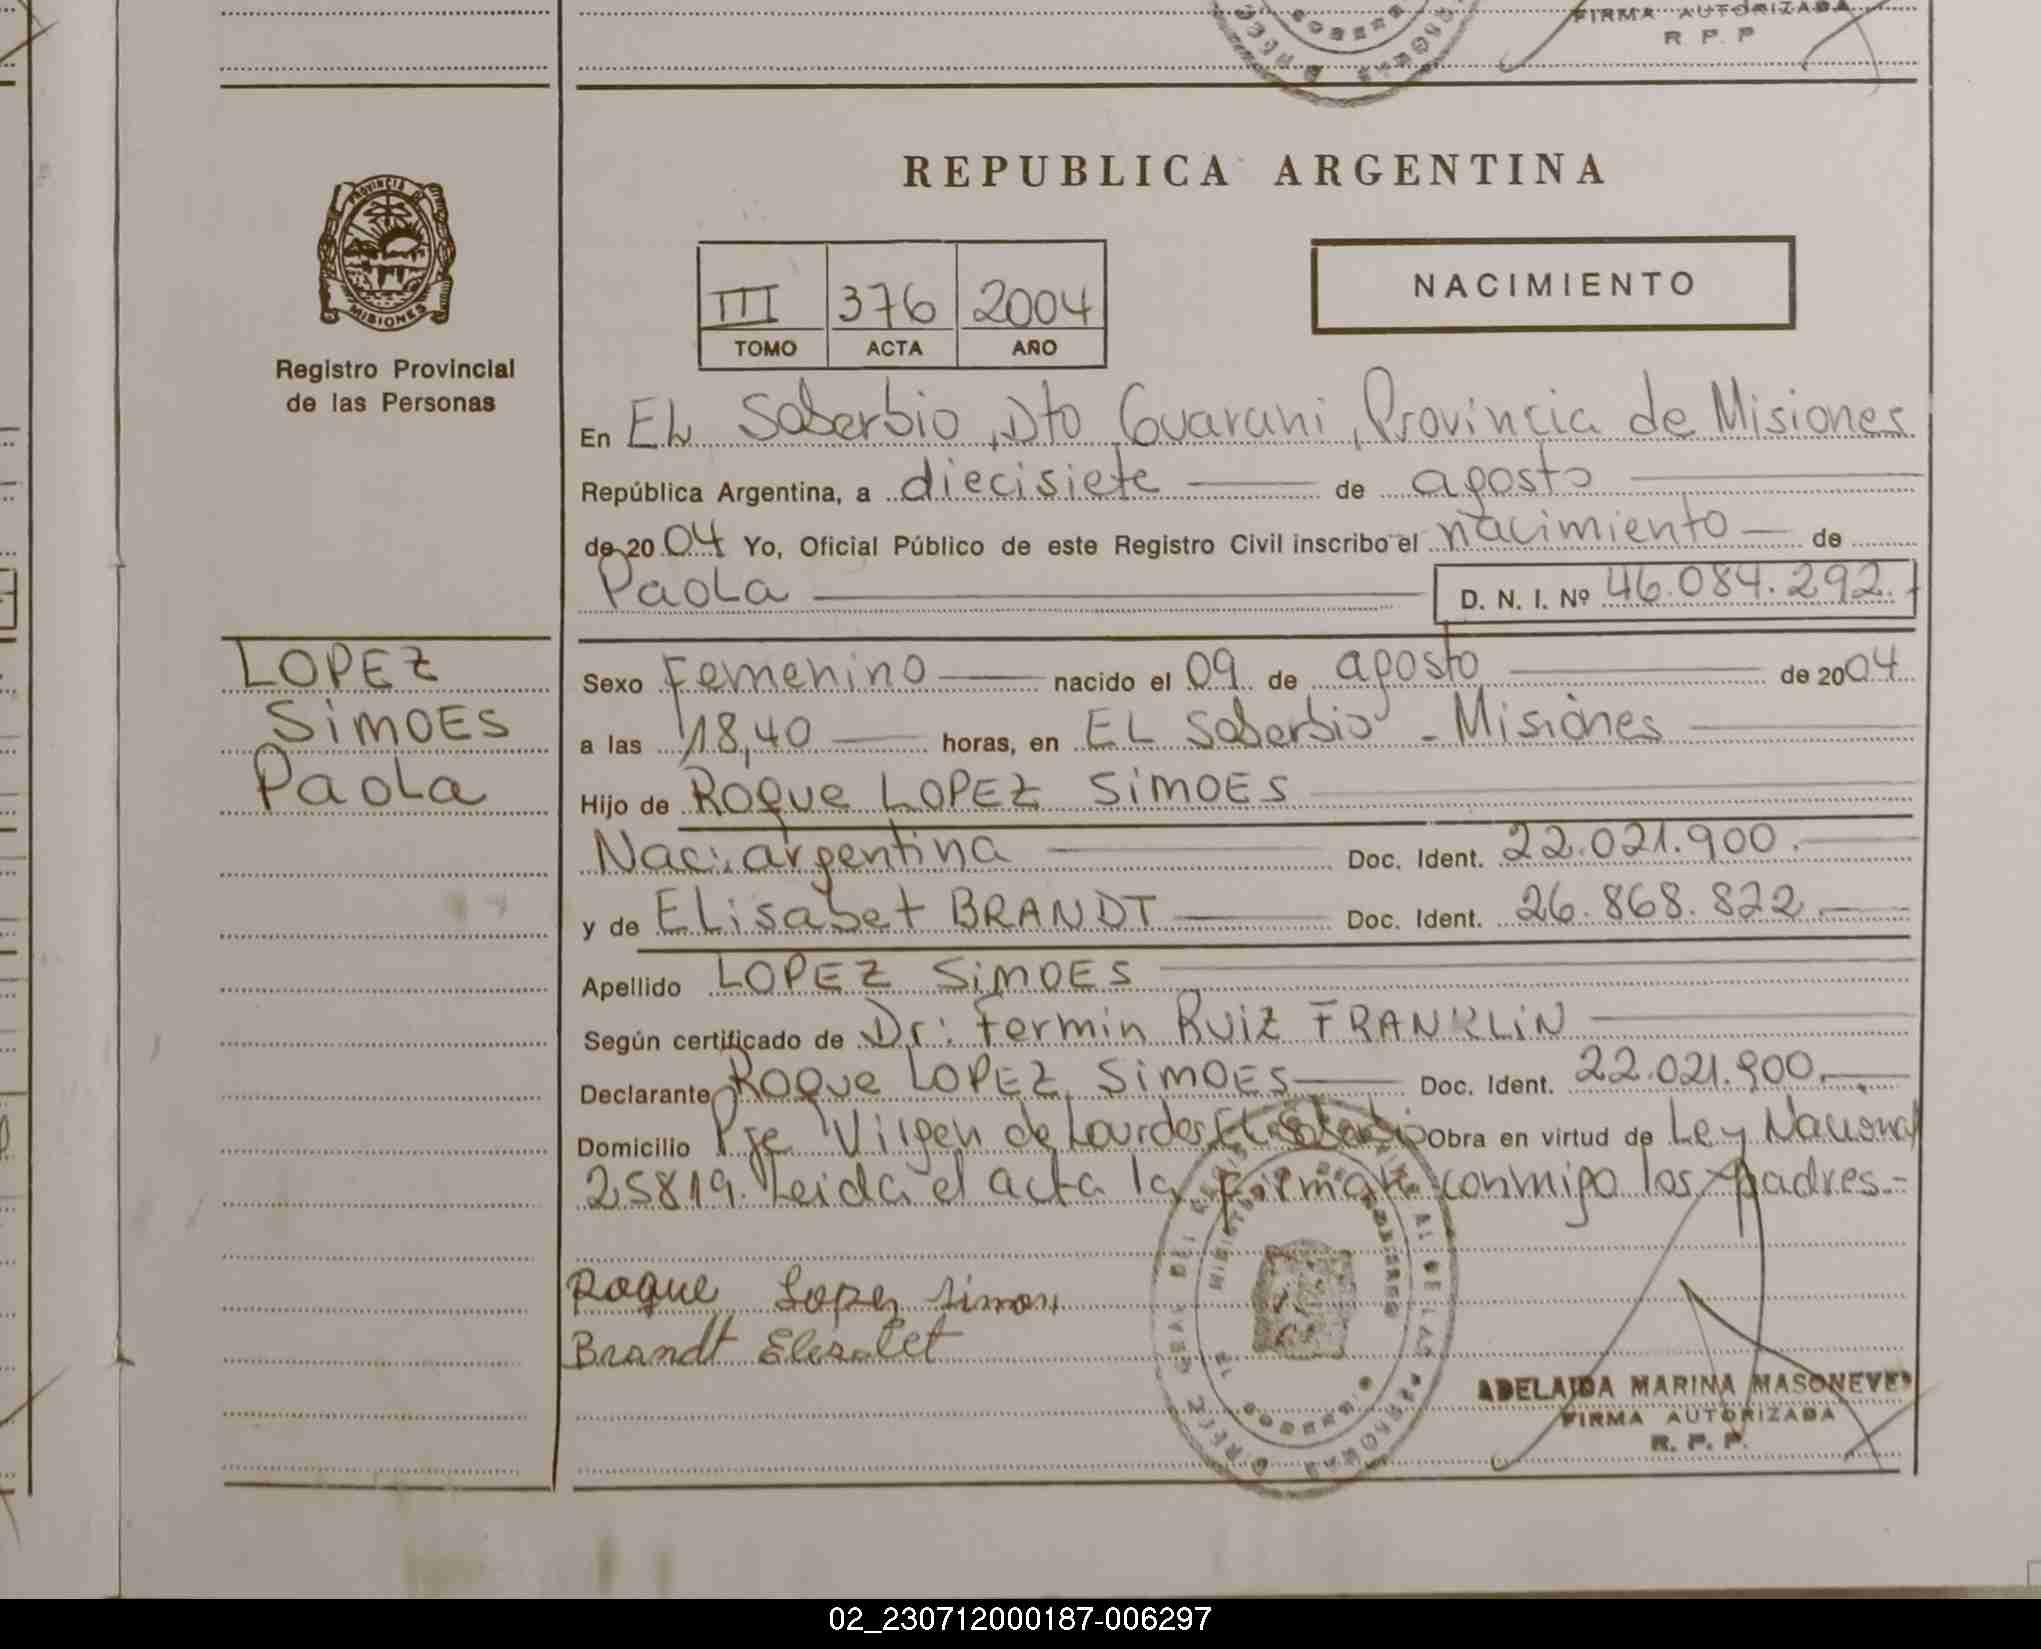 FIRMA AUTORIZADA
R. P. P
REPUBLICA ARGENTINA
PROVINCIA DE
MISIONES
Registro Provincial
de las Personas
III 376 2004
TOMO ACTA AÑO
NACIMIENTO
En EL Soberbio, Dto Guarani, Provincia de Misiones
República Argentina, a diecisiete de agosto
de 2004 Yo, Oficial Público de este Registro Civil inscribo el nacimiento de
Paola D. N. I. Nº 46.084.292.
LOPEZ
SiMOES
Paola
Sexo Femenino nacido el 09 de agosto de 2004
a las 18,40 horas, en EL Soberbio - Misiones
Hijo de Roque LOPEZ SiMOES
Nac: argentina Doc. Ident. 22.021.900.
y de ELisabet BRANDT Doc. Ident. 26.868.822.
Apellido LOPEZ SiMOES
Según certificado de Dr: Fermin Ruiz FRANKLiN
Declarante Roque LOPEZ SiMOES Doc. Ident. 22.021.900.
Domicilio Pje Virgen de Lourdes El Soberbio Obra en virtud de Ley Nacional
25819. Leida el acta la firman conmigo los padres.-
Roque Lopez Simoes
Brandt Elisabet
ADELAIDA MARINA MASONEVE
FIRMA AUTORIZADA
R. P. P.
02_230712000187-006297